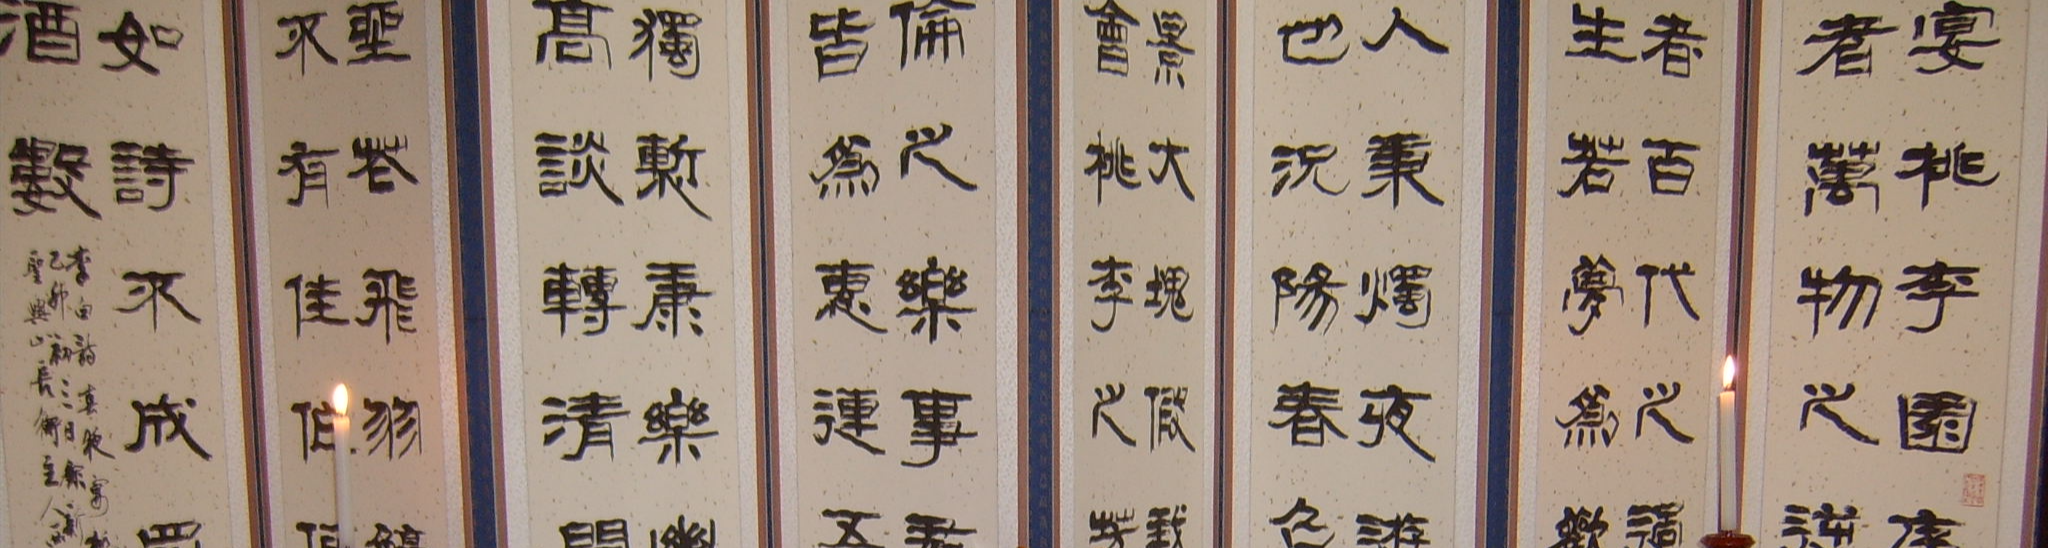 宴桃李園序
者萬物之逆
者百代之過
生若夢爲歡
人秉燭夜遊
也況陽春召
景大塊假我
會桃李之芳
倫之樂事羣
皆爲惠連吾
獨慙康樂幽
高談轉清開
花飛羽觴
不有佳何
如詩不成罰
酒數
李白詩春夜宴
乙卯初三日
主人